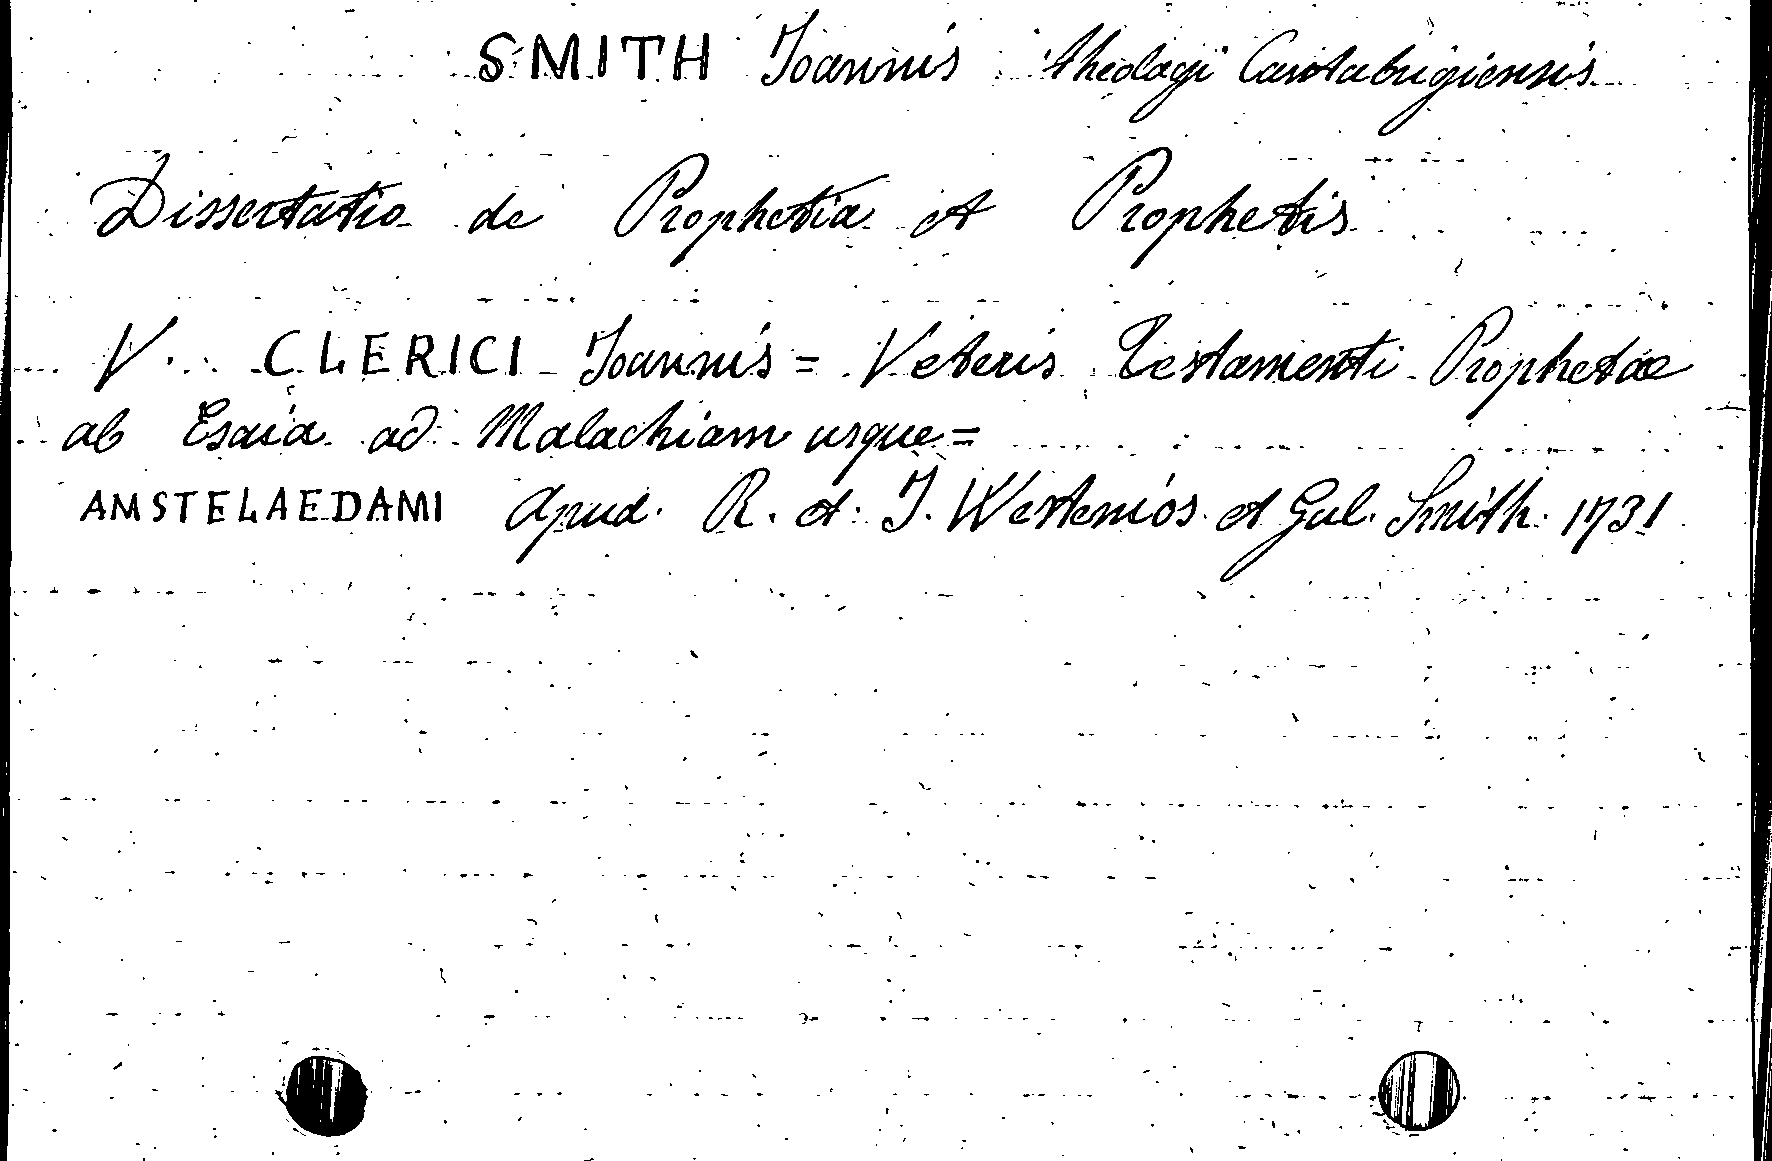 SMITH Joannis theologi Cantabrigiensis
Dissertatio de Prophetia et Prophetis
V. CLERICI Joannis = Veteris Testamenti Prophetae
ab Esaia ad Malachiam usque =
AMSTELAEDAMI Apud. R. et. J. Wetstenios et Gul. Smith. 1731